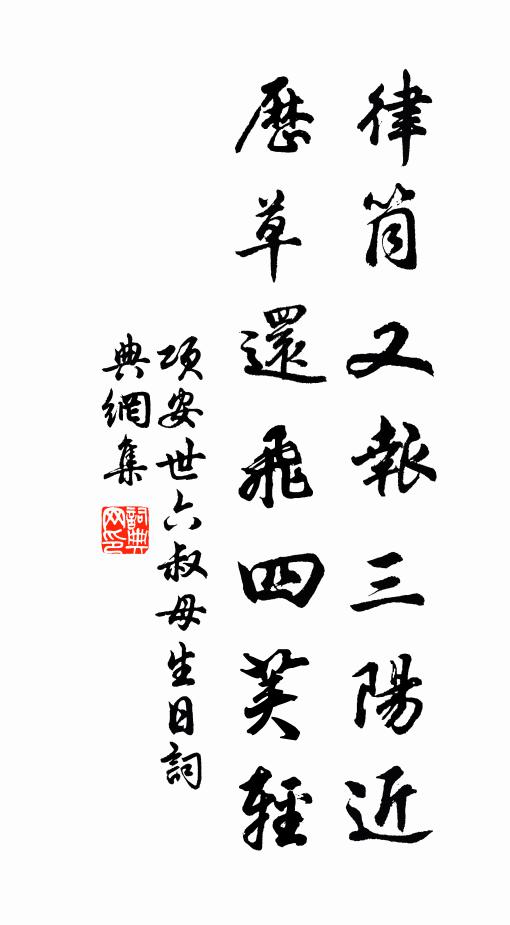 律筒又報三陽近
歷草還飛四荚輕
項安世六叔母生日詞
典網集
詞典網印